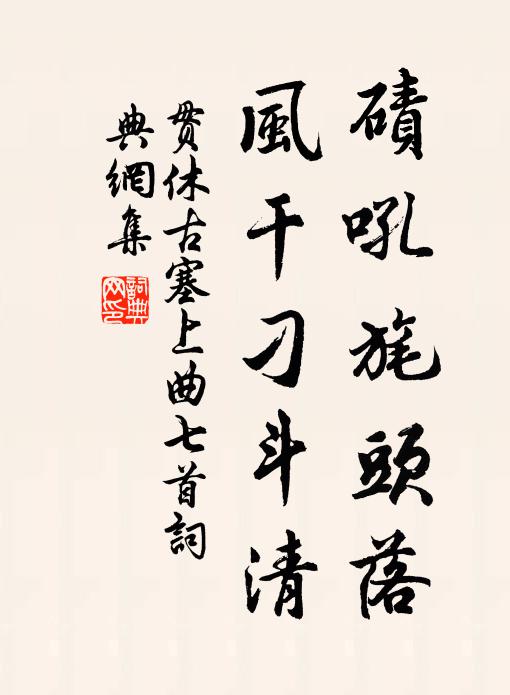 磧吼旄頭落
風干刁斗清
贯休古塞上曲七首詞
典網集
詞典
网印